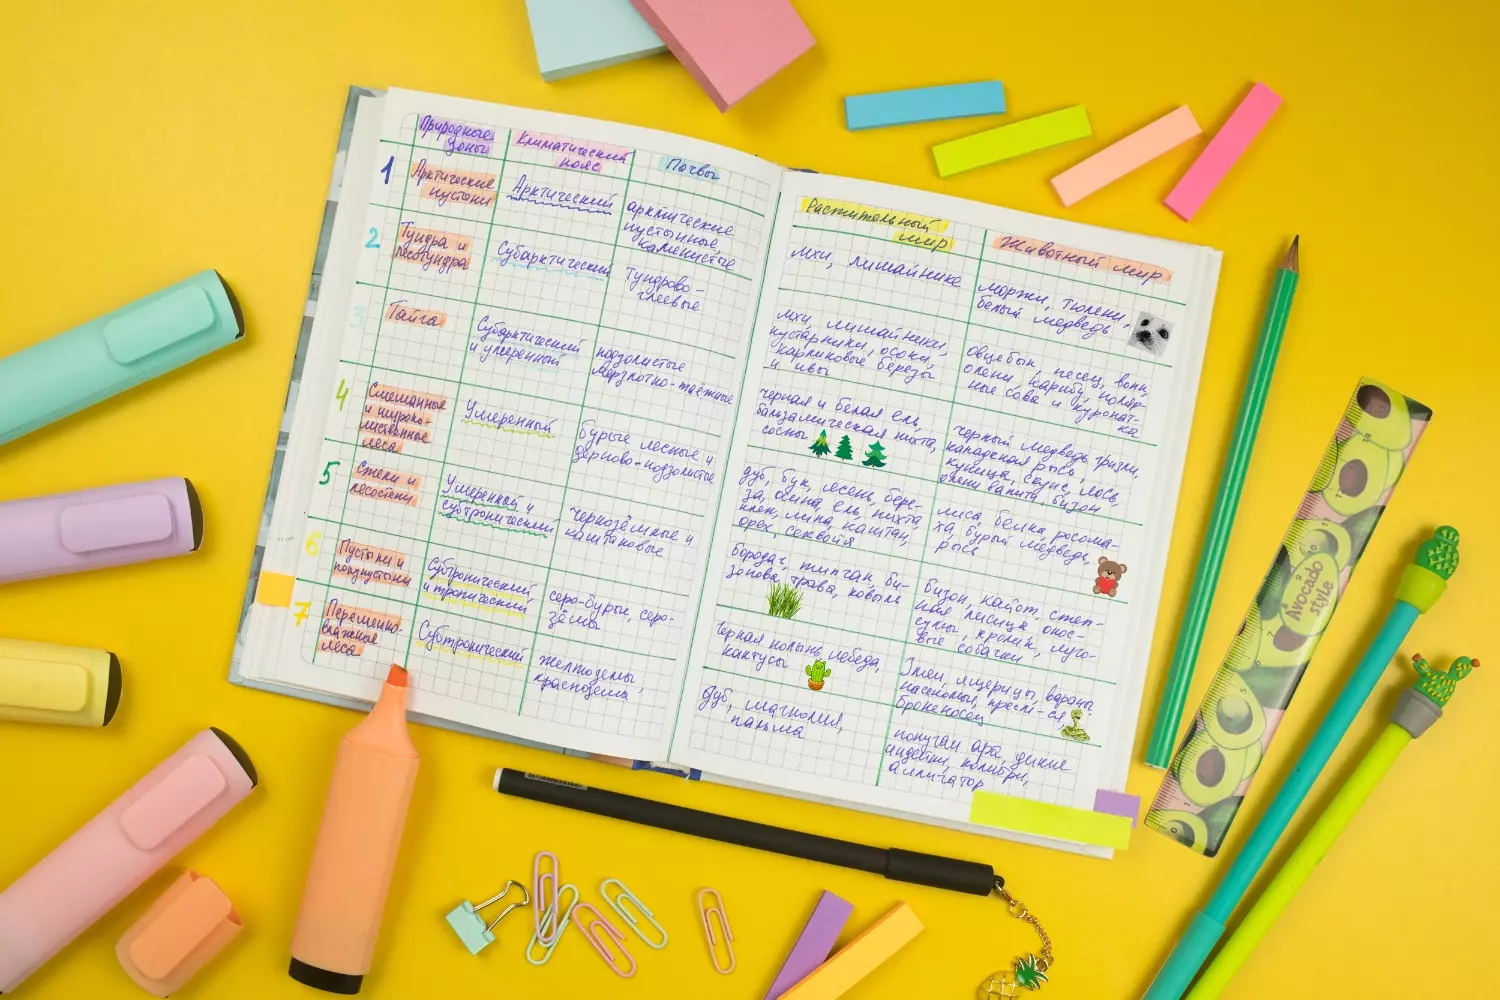 Природные
зоны
Климатический
пояс
Почвы
Растительный
мир
Животный мир
1
Арктические
пустыни
Арктический
арктические
пустынные,
каменистые
мхи, лишайники
моржи, тюлени,
белый медведь
2
Тундра и
лесотундра
Субарктический
Тундрово-
глеевые
мхи, лишайники,
кустарники, осоки,
карликовые березы
и ивы
овцебык, песец, волк,
олени, карибу, поляр-
ные сова и куропат-
ка
3
Тайга
Субарктический
и умеренный
подзолистые
мерзлотно-таёжные
черная и белая ель,
бальзамическая пихта,
сосны
черный медведь гризли,
канадская рысь,
куница, скунс, лось,
олени вапити, бизон
4
Смешанные
и широко-
лиственные
леса
Умеренный
бурые лесные и
дерново-подзолистые
дуб, бук, ясень, бере-
за, осина, ель, пихта
клен, липа, каштан,
орех, секвойя
лиса, белка, росома-
ха, бурый медведь,
рысь
5
Степи и
лесостепи
Умеренный и
субтропический
чернозёмные и
каштановые
бородач, типчак, би-
зонова, трава, ковыль
бизон, койот, степ-
ная лисица, опос-
сумы, кролик, луго-
вые собачки
6
Пустыни и
полупустыни
Субтропический
и тропический
серо-бурые, серо-
зёмы
черная полынь, лебеда,
кактусы
Змеи, ящерицы, вараны
насекомые, пресм-ся,
броненосец
7
Переменно-
влажные
леса
Субтропический
желтоземы,
красноземы
дуб, магнолия,
пальма
попугаи ара, дикие
индейки, колибри,
аллигатор
Avocado
style